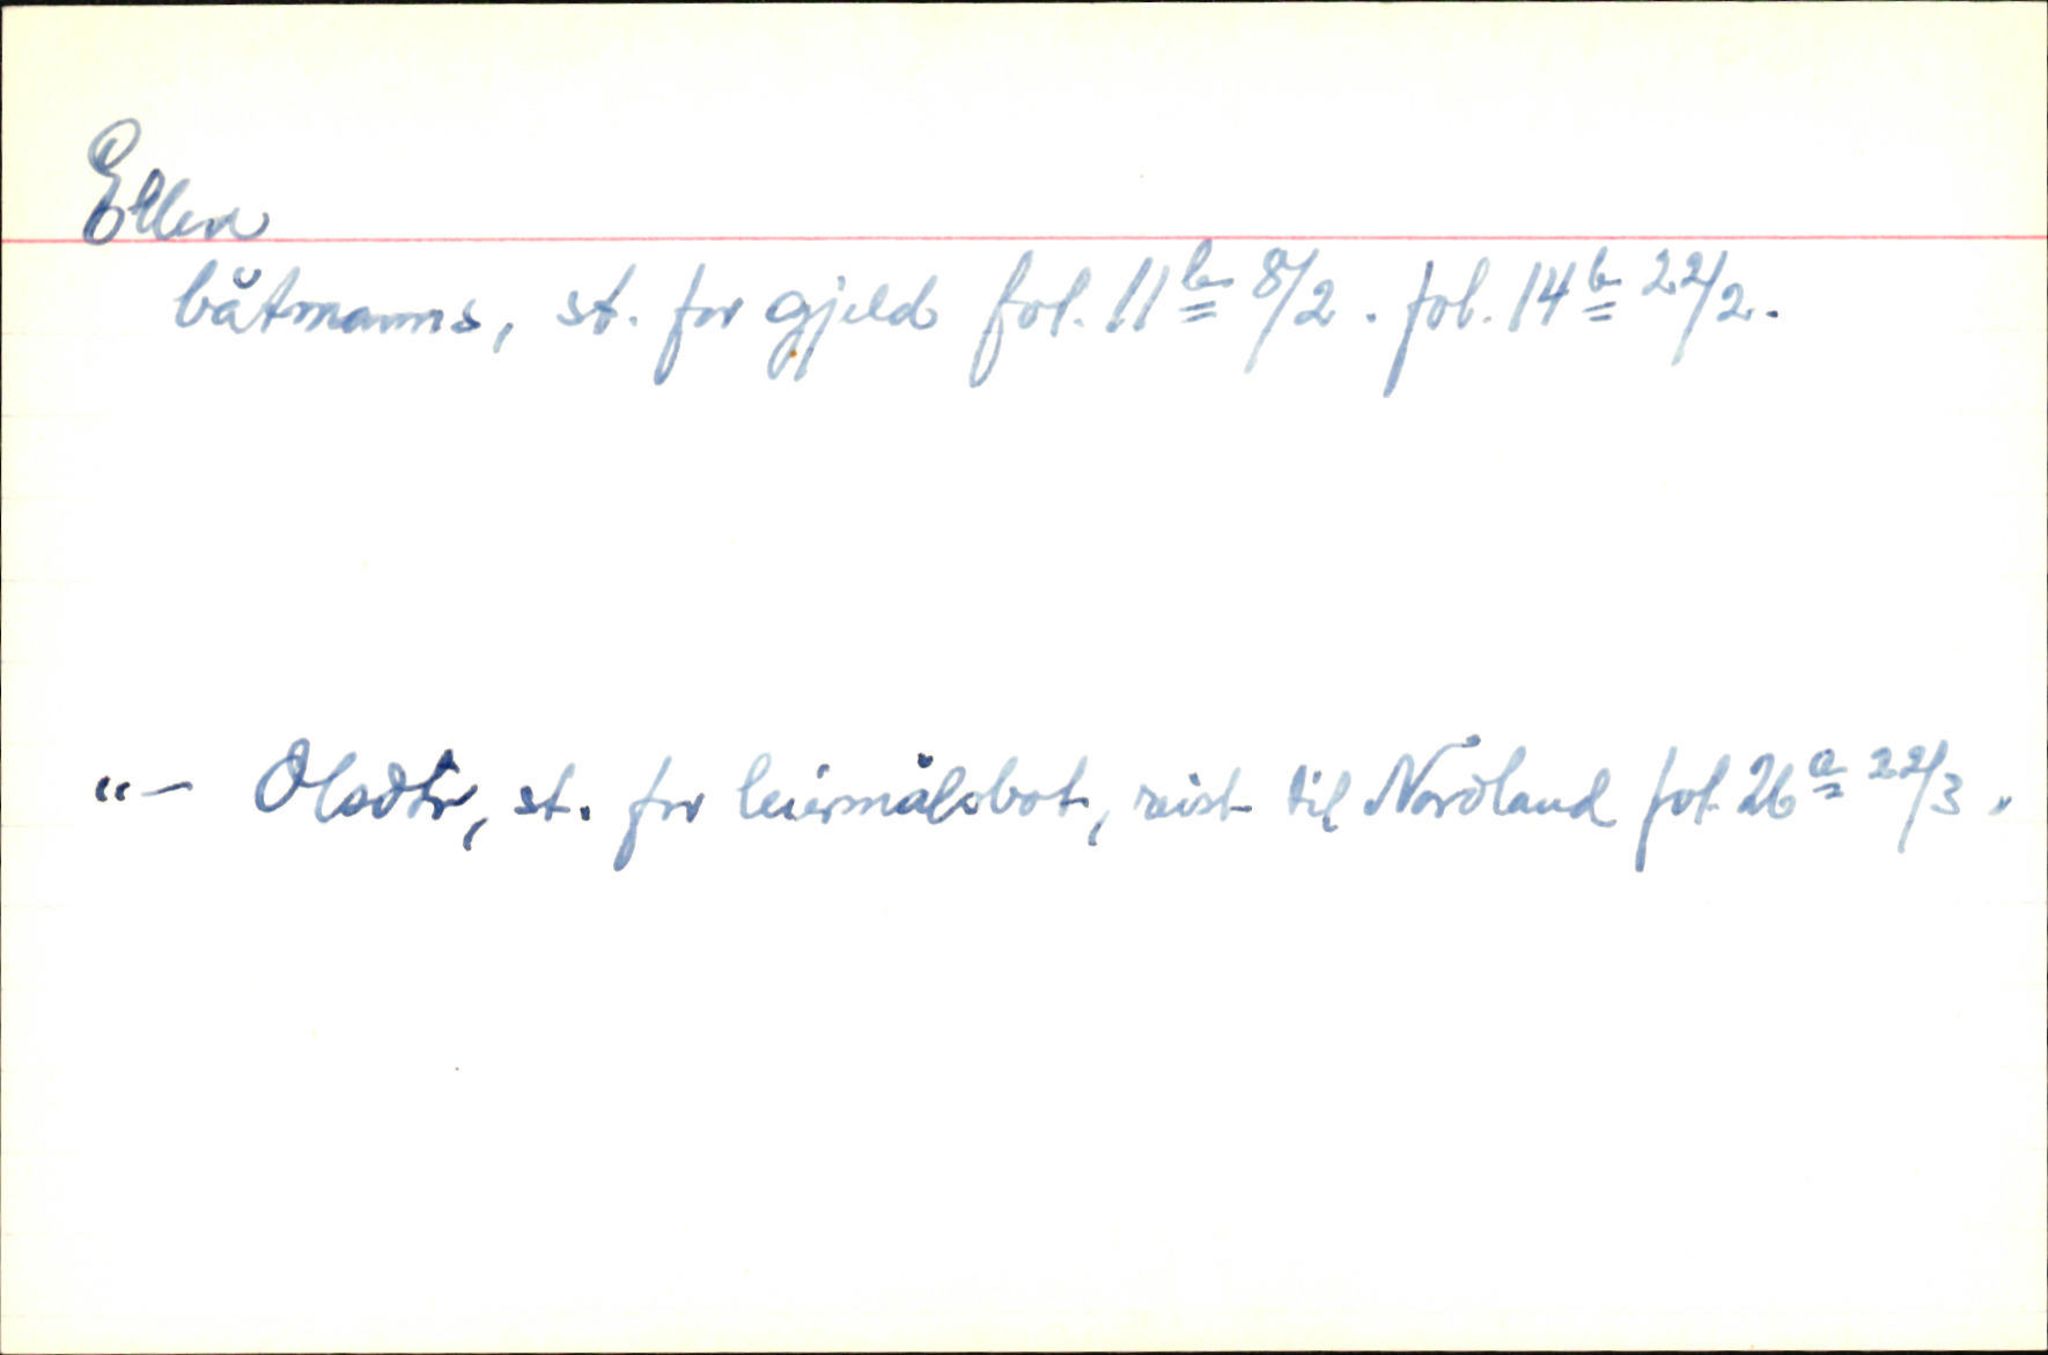 Ellen
båtmanns, st. for gjeld fol. 11b 8/2. fol. 14b 22/2.
"- Olsdtr, st. for leiermålsbot, reist til Nordland fol. 26a 22/3.